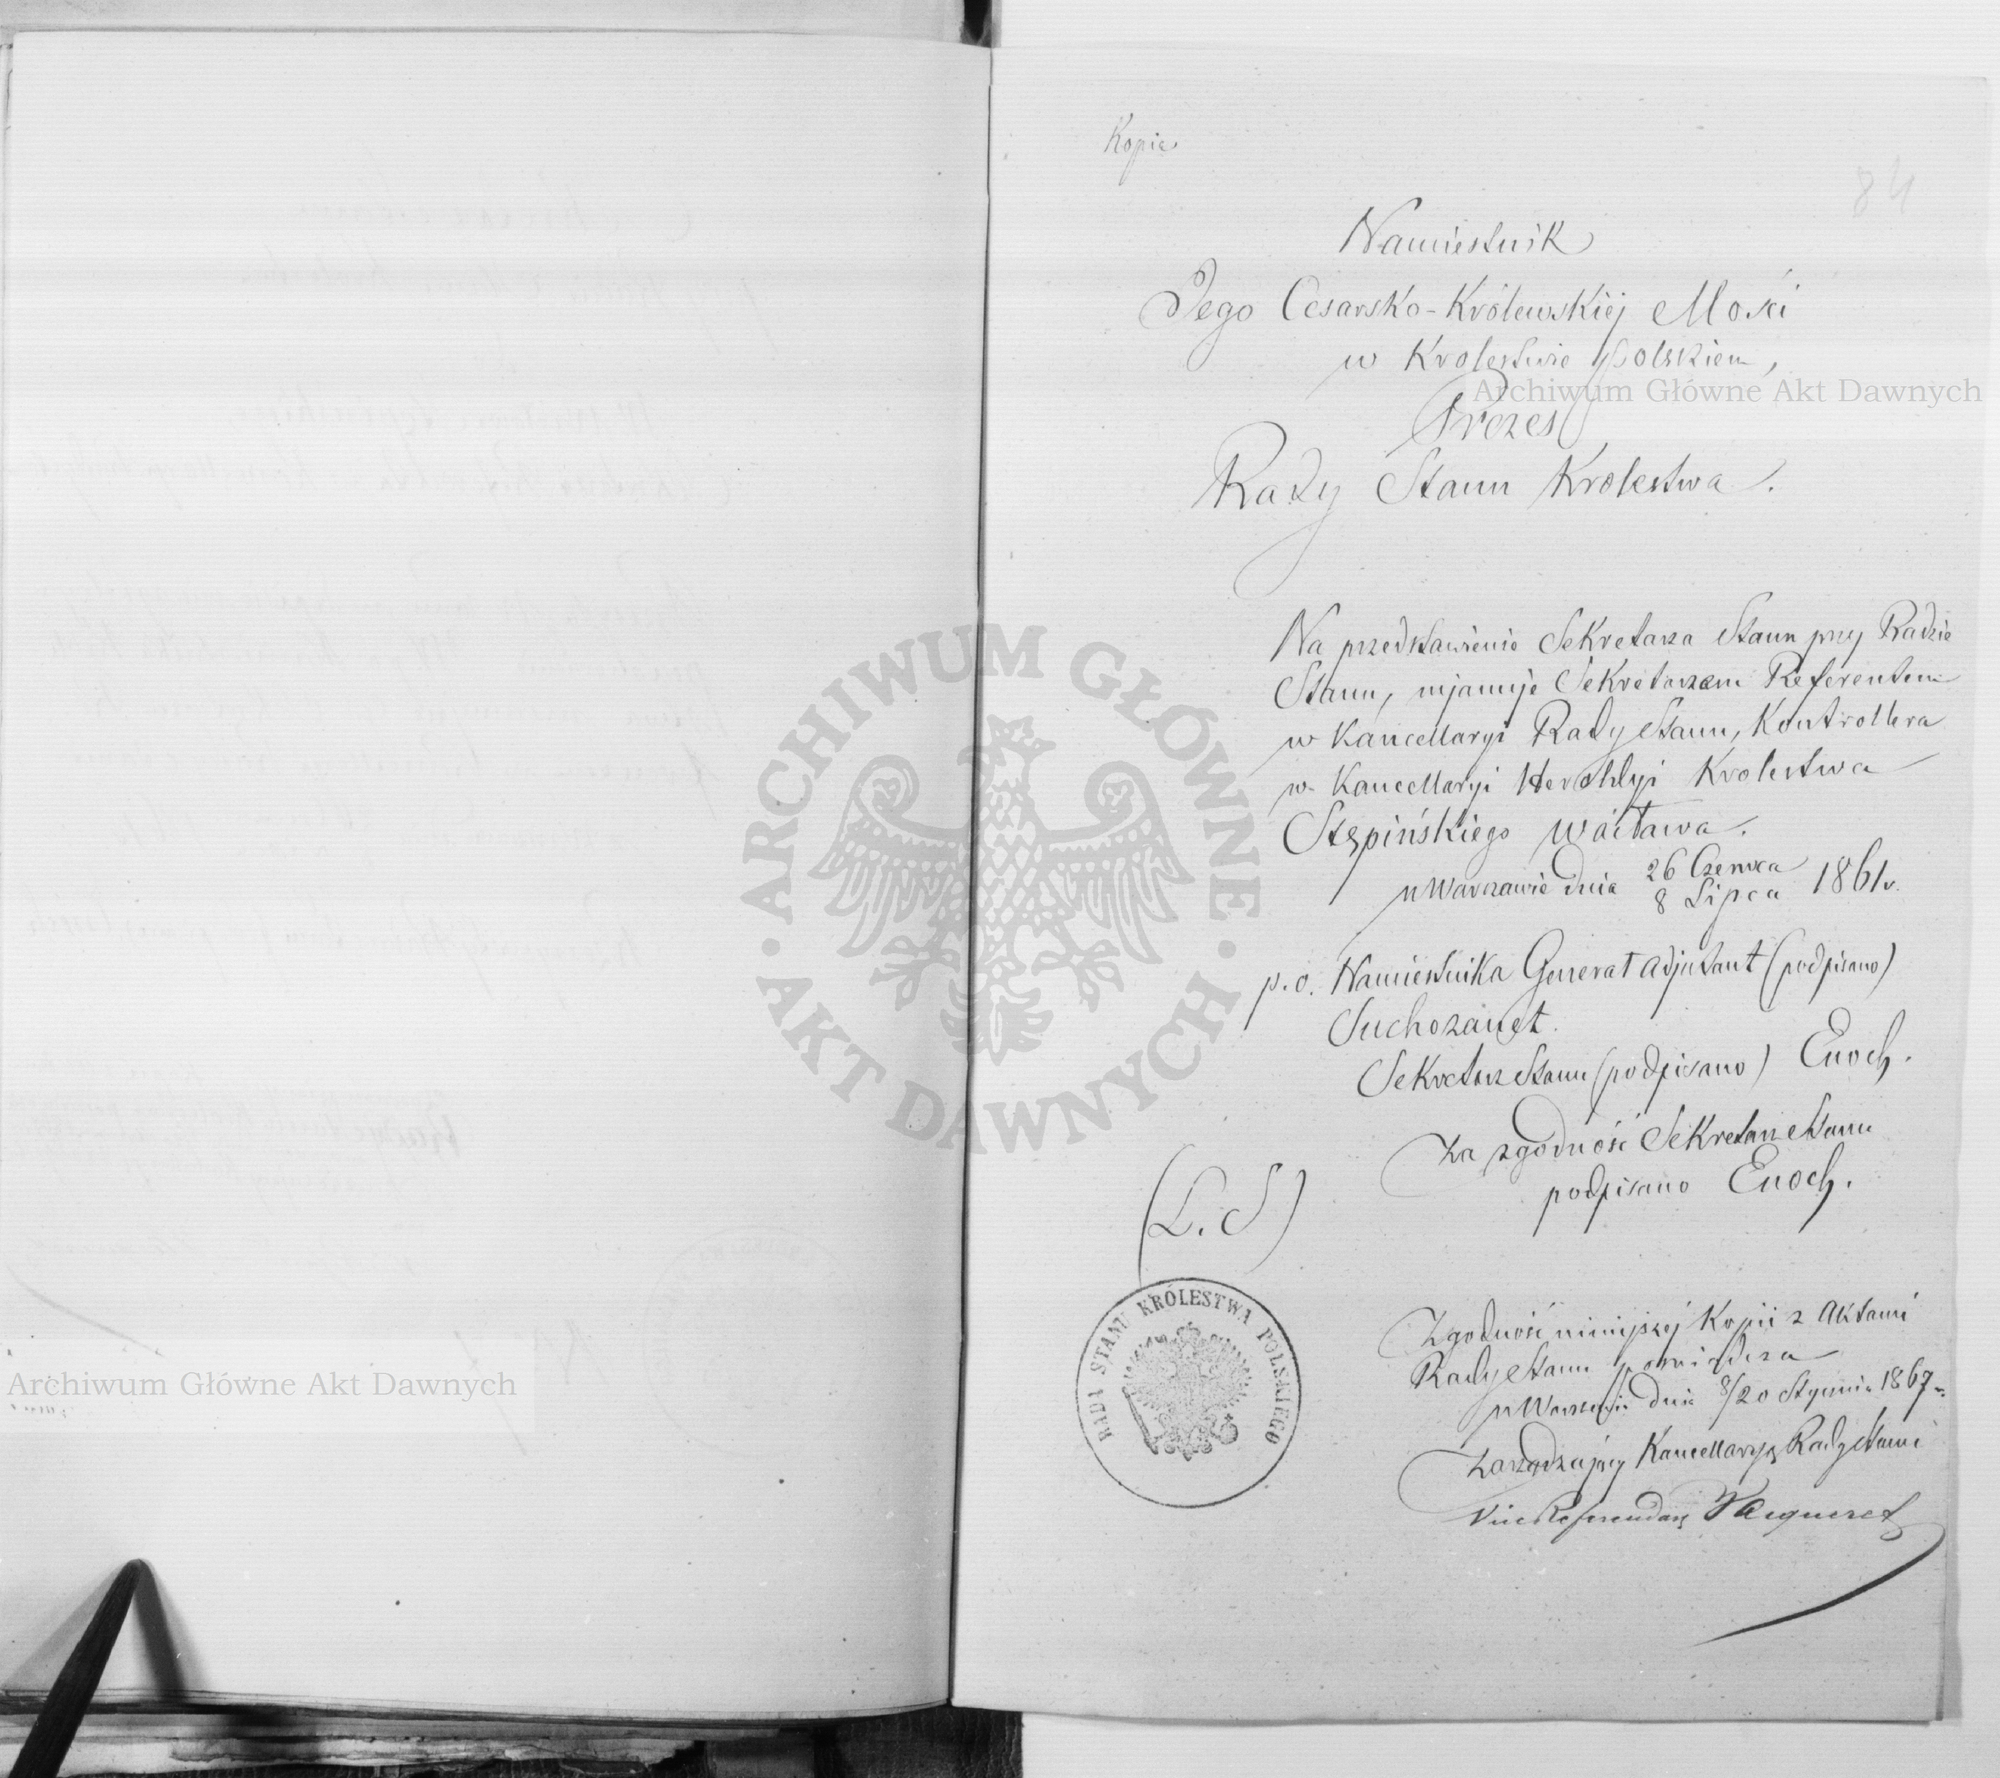 Kopia
84
Namiestnik
Jego Cesarsko-Królewskiéj Mości
w Królestwie Polskiem,
Prezes
Rady Stanu Królestwa.
Na przedstawienie Sekretarza Stanu przy Radzie
Stanu, mjanuje Sekretarzem Referentem
w Kancellaryi Rady Stanu, Kontrollera
w Kancellaryi Heroldyi Królestwa
Stępińskiego Wacława.
w Warszawie dnia 26 Czerwca
8 Lipca 1861 r.
p.o. Namiestnika Generał Adjutant (podpisano)
Suchozanet.
Sekretarz Stanu (podpisano) Enoch.
Za zgodność Sekretarz Stanu
podpisano Enoch.
(L. S)
RADA STANU KRÓLESTWA POLSKIEGO
Zgodność niniejszéj Kopii z Aktami
Rady Stanu poświadcza
w Warszawie dnia 8/20 Stycznia 1867 r.
Zarządzający Kancellaryą Rady Stanu
Vice Referendarz
Archiwum Główne Akt Dawnych
Archiwum Główne Akt Dawnych
ARCHIWUM GŁÓWNE • AKT DAWNYCH •